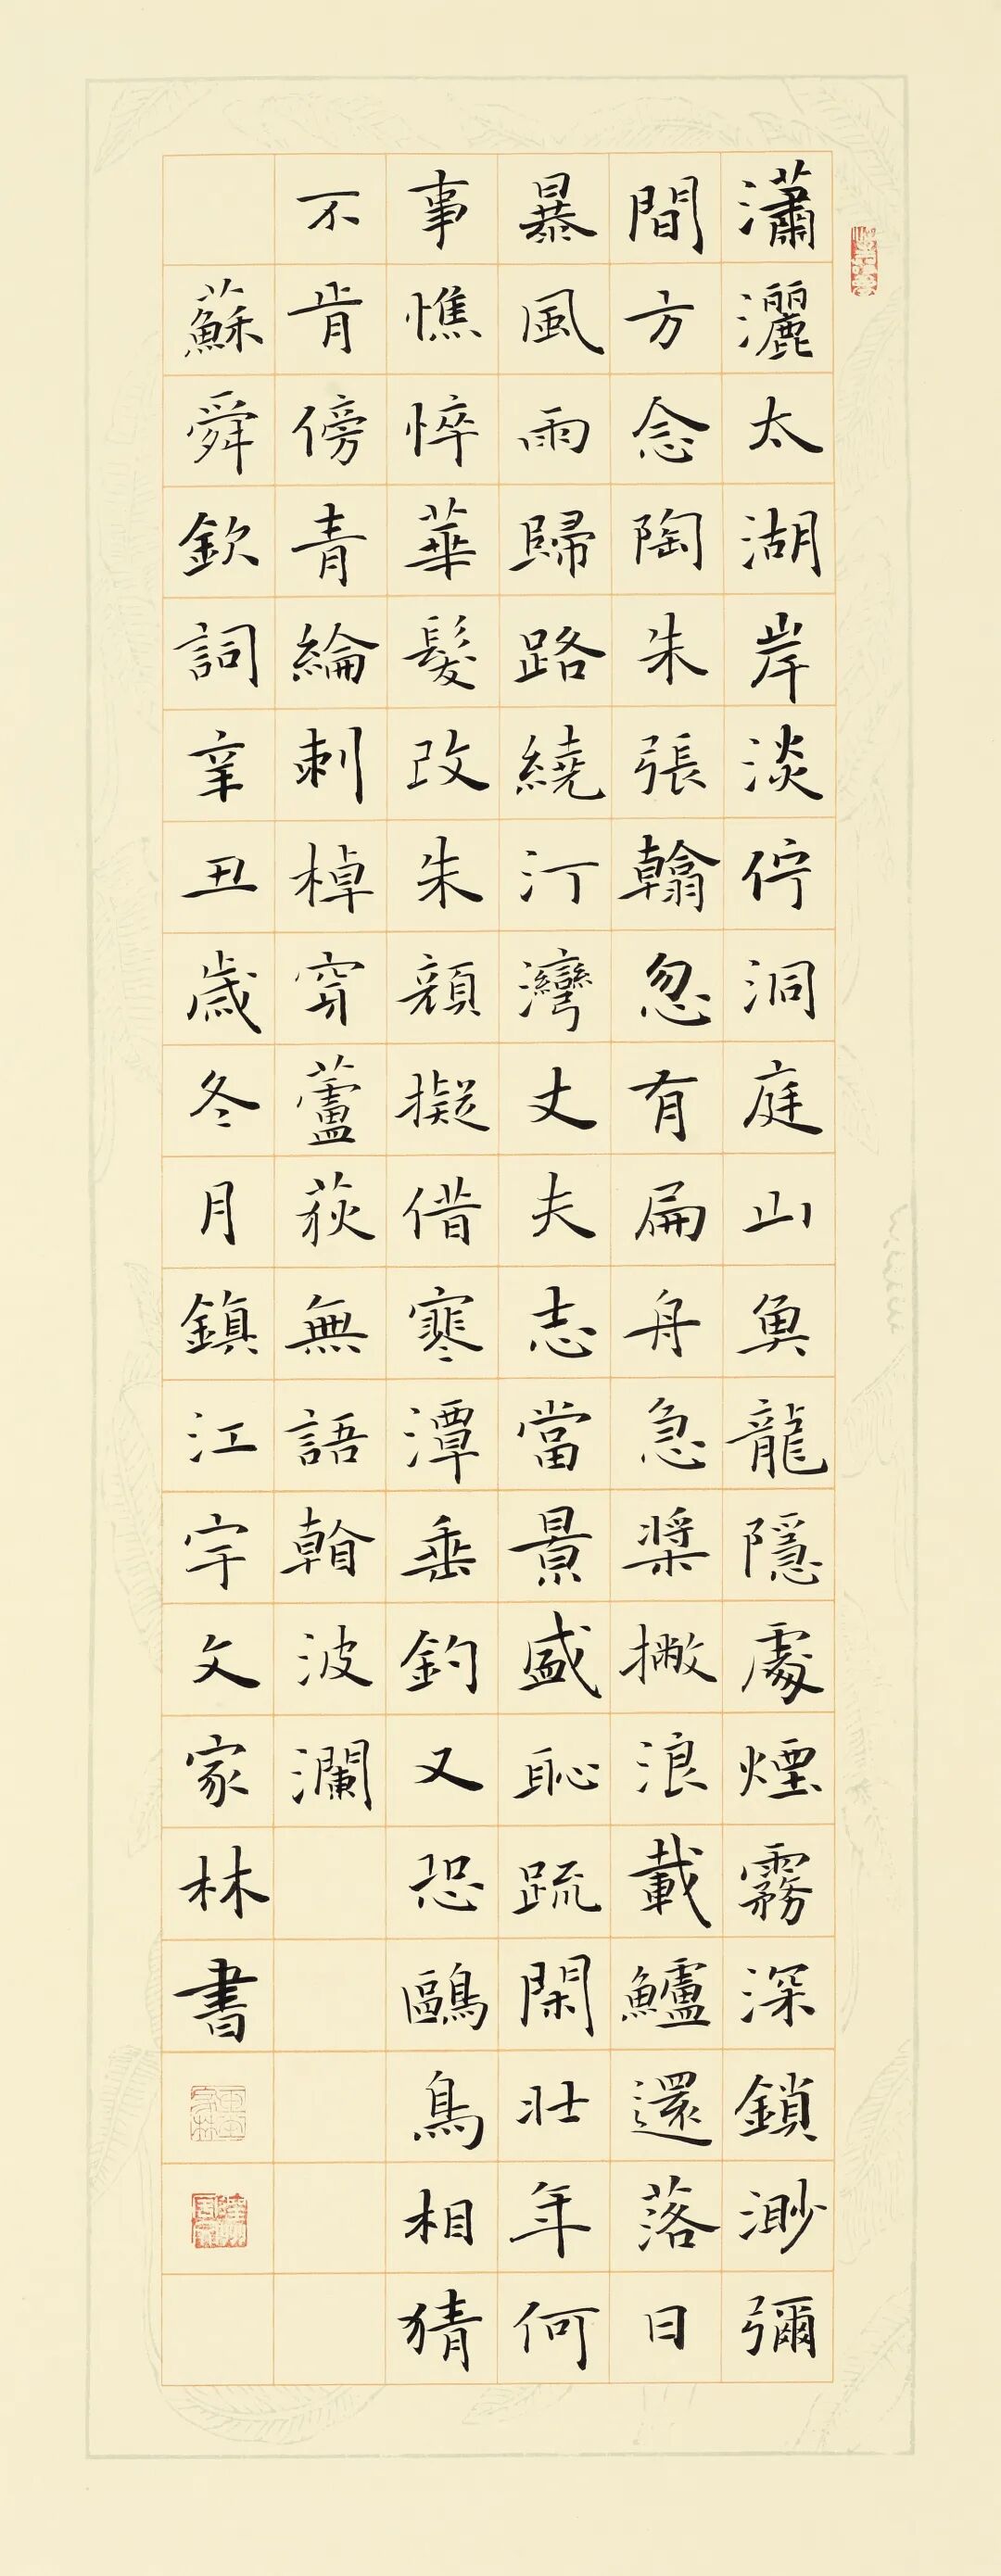 瀟灑太湖岸淡佇洞庭山魚龍隱處煙霧深鎖渺彌
間方念陶朱張翰忽有扁舟急槳撇浪載鱸還落日
暴風雨歸路繞汀灣丈夫志當景盛恥疏閑壯年何
事憔悴華髮改朱顏擬借寒潭垂釣又恐鷗鳥相猜
不肯傍青綸刺棹穿蘆荻無語看波瀾
蘇舜欽詞辛丑歲冬月鎮江宇文家林書